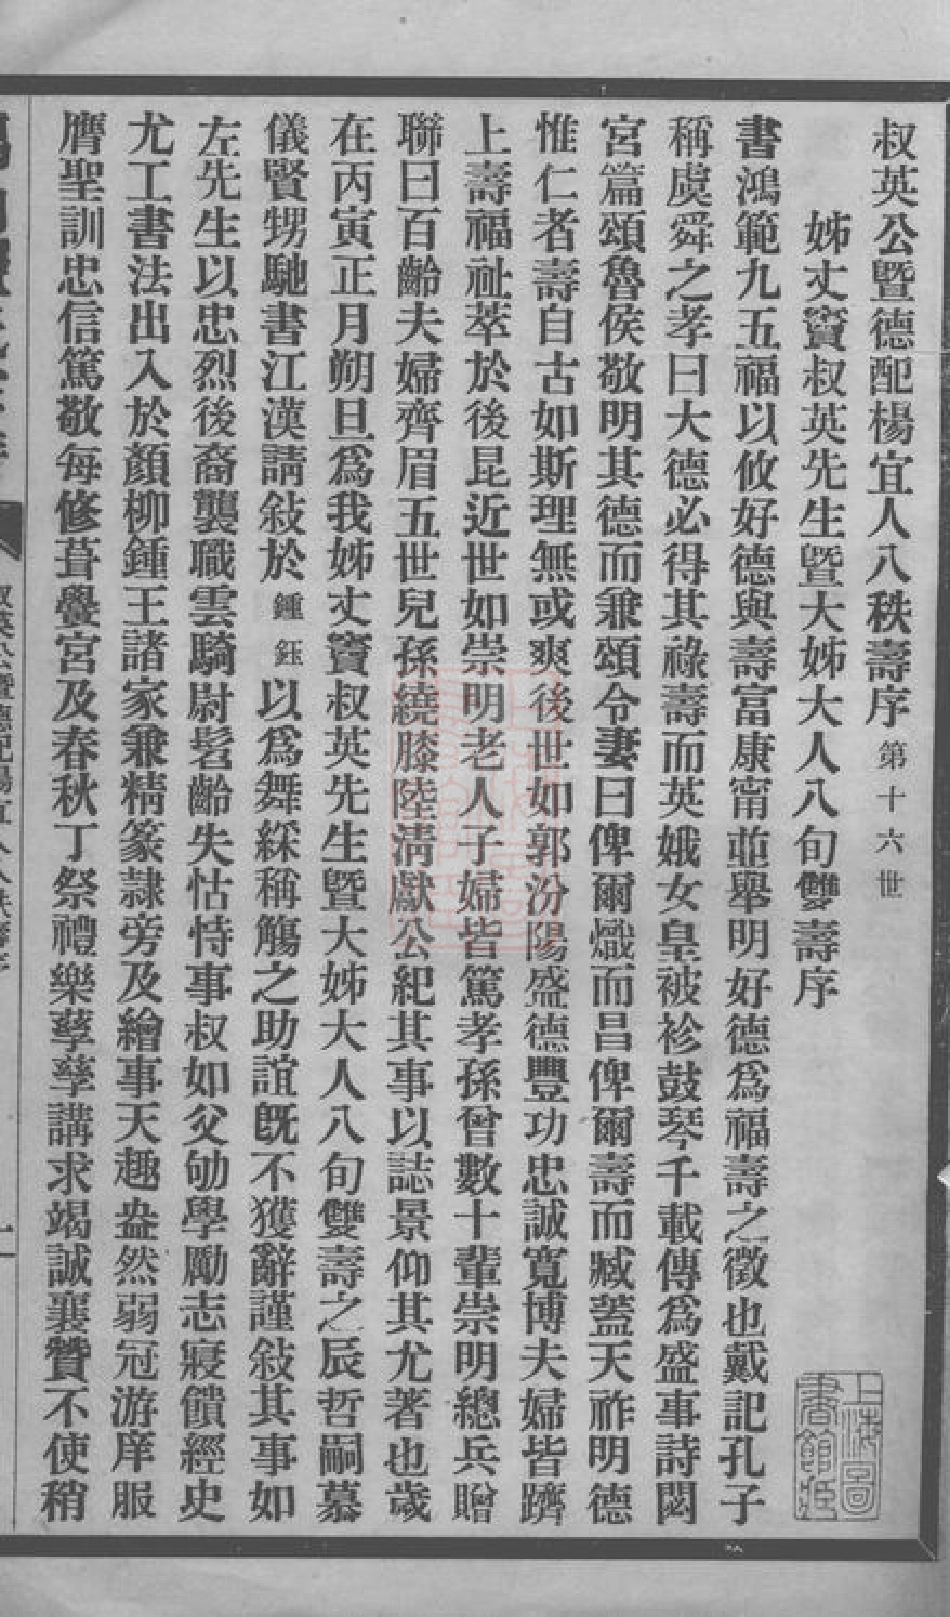 叔英公暨德配楊宜人八秩壽序第十六世
姊丈竇叔英先生暨大姊大人八旬雙壽序
書鴻範九五福以攸好德與壽富康甯並舉明好德爲福壽之徵也戴記孔子
稱虞舜之孝曰大德必得其祿壽而英娥女皇被袗鼓琴千載傳爲盛事詩閟
宮篇頌魯侯敬明其德而兼頌令妻曰俾爾熾而昌俾爾壽而臧蓋天祚明德
惟仁者壽自古如斯理無或爽後世如郭汾陽盛德豐功忠誠寬博夫婦皆躋
上壽福祉萃於後昆近世如崇明老人子婦皆篤孝孫曾數十輩崇明總兵贈
聯曰百齡夫婦齊眉五世兒孫繞膝陸淸獻公紀其事以誌景仰其尤著也歲
在丙寅正月朔旦爲我姊丈竇叔英先生暨大姊大人八旬雙壽之辰哲嗣慕
儀賢甥馳書江漢請敍於鍾鈺以爲舞綵稱觴之助誼旣不獲辭謹敍其事如
左先生以忠烈後裔襲職雲騎尉髫齡失怙恃事叔如父劬學勵志寢饋經史
尤工書法出入於顏柳鍾王諸家兼精篆隷旁及繪事天趣盎然弱冠游庠服
膺聖訓忠信篤敬每修葺黌宮及春秋丁祭禮樂孳孳講求竭誠襄贊不使稍
上海圖書館藏